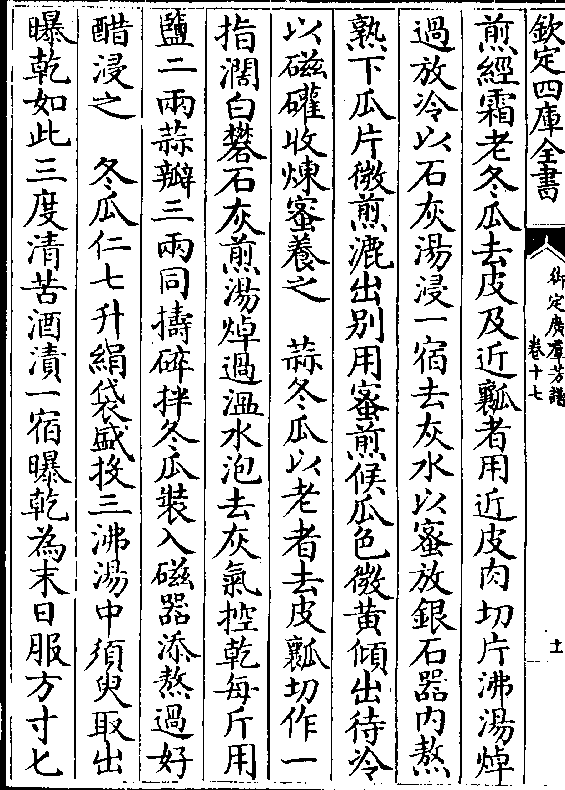 欽定四庫全書
御定廣羣芳譜
卷十七
十一
煎經霜老冬瓜去皮及近瓤者用近皮肉切片沸湯焯
過放冷以石灰湯浸一宿去灰水以蜜放銀石器内熬
熟下瓜片微煎漉出别用蜜煎候瓜色微黄傾出待冷
以磁礶收煉蜜養之　蒜冬瓜以老者去皮瓤切作一
指濶白礬石灰煎湯焯過溫水泡去灰氣控乾每斤用
鹽二兩蒜瓣三兩同擣碎拌冬瓜裝入磁器添熬過好
醋浸之　冬瓜仁七升絹袋盛投三沸湯中須臾取出
曝乾如此三度清苦酒漬一宿曝乾為末日服方寸匕